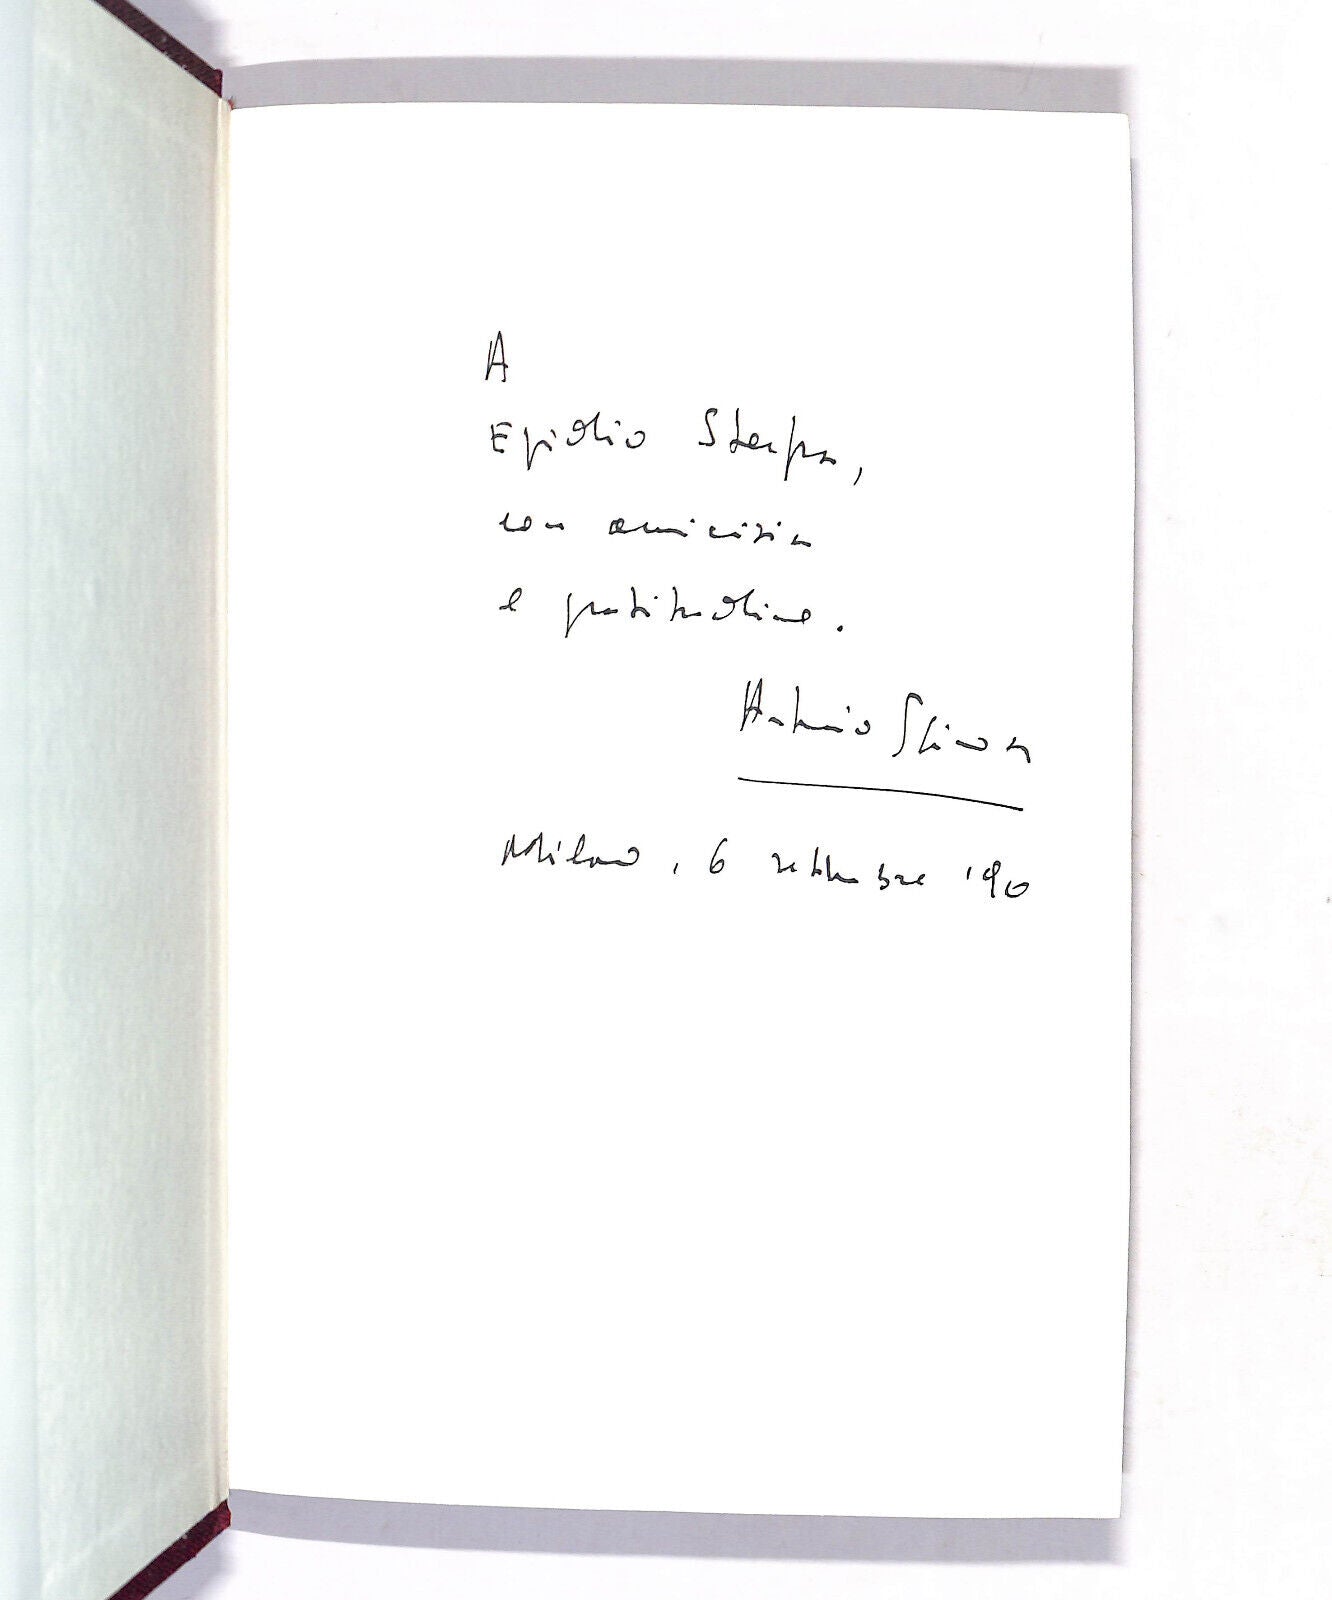 A
Egidio Sterpa,
con amicizia
e gratitudine.
Antonio
Milano, 6 settembre '90